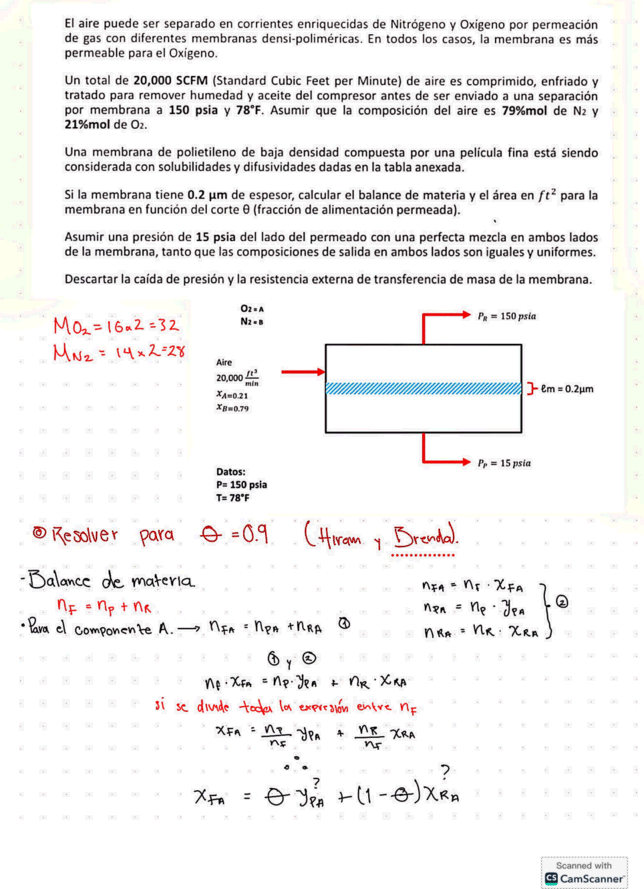 El aire puede ser separado en corrientes enriquecidas de Nitrógeno y Oxígeno por permeación
de gas con diferentes membranas densi-poliméricas. En todos los casos, la membrana es más
permeable para el Oxígeno.
Un total de 20,000 SCFM (Standard Cubic Feet per Minute) de aire es comprimido, enfriado y
tratado para remover humedad y aceite del compresor antes de ser enviado a una separación
por membrana a 150 psia y 78°F. Asumir que la composición del aire es 79%mol de N₂ y
21%mol de O₂.
Una membrana de polietileno de baja densidad compuesta por una película fina está siendo
considerada con solubilidades y difusividades dadas en la tabla anexada.
Si la membrana tiene 0.2 μm de espesor, calcular el balance de materia y el área en ft² para la
membrana en función del corte θ (fracción de alimentación permeada).
Asumir una presión de 15 psia del lado del permeado con una perfecta mezcla en ambos lados
de la membrana, tanto que las composiciones de salida en ambos lados son iguales y uniformes.
Descartar la caída de presión y la resistencia externa de transferencia de masa de la membrana.
MO₂ = 16x2 = 32
MN₂ = 14x2=28
O₂ = A
N₂ = B
P_R = 150 psia
Aire
20,000 ft³/min
x_A=0.21
x_B=0.79
ℓm = 0.2μm
P_P = 15 psia
Datos:
P= 150 psia
T= 78°F
◎ Resolver para θ = 0.9 (Hiram y Brenda).
- Balance de materia
n_F = n_P + n_R
• Para el componente A. → n_FA = n_PA + n_RA ①
n_FA = n_F · x_FA
n_PA = n_P · y_PA
n_RA = n_R · x_RA
②
① y ②
n_F · x_FA = n_P · y_PA + n_R · x_RA
si se divide toda la expresión entre n_F
x_FA = n_P/n_F y_PA + n_R/n_F x_RA
∴
x_FA = θ y_PA + (1 - θ) x_RA
? ?
Scanned with
CS CamScanner